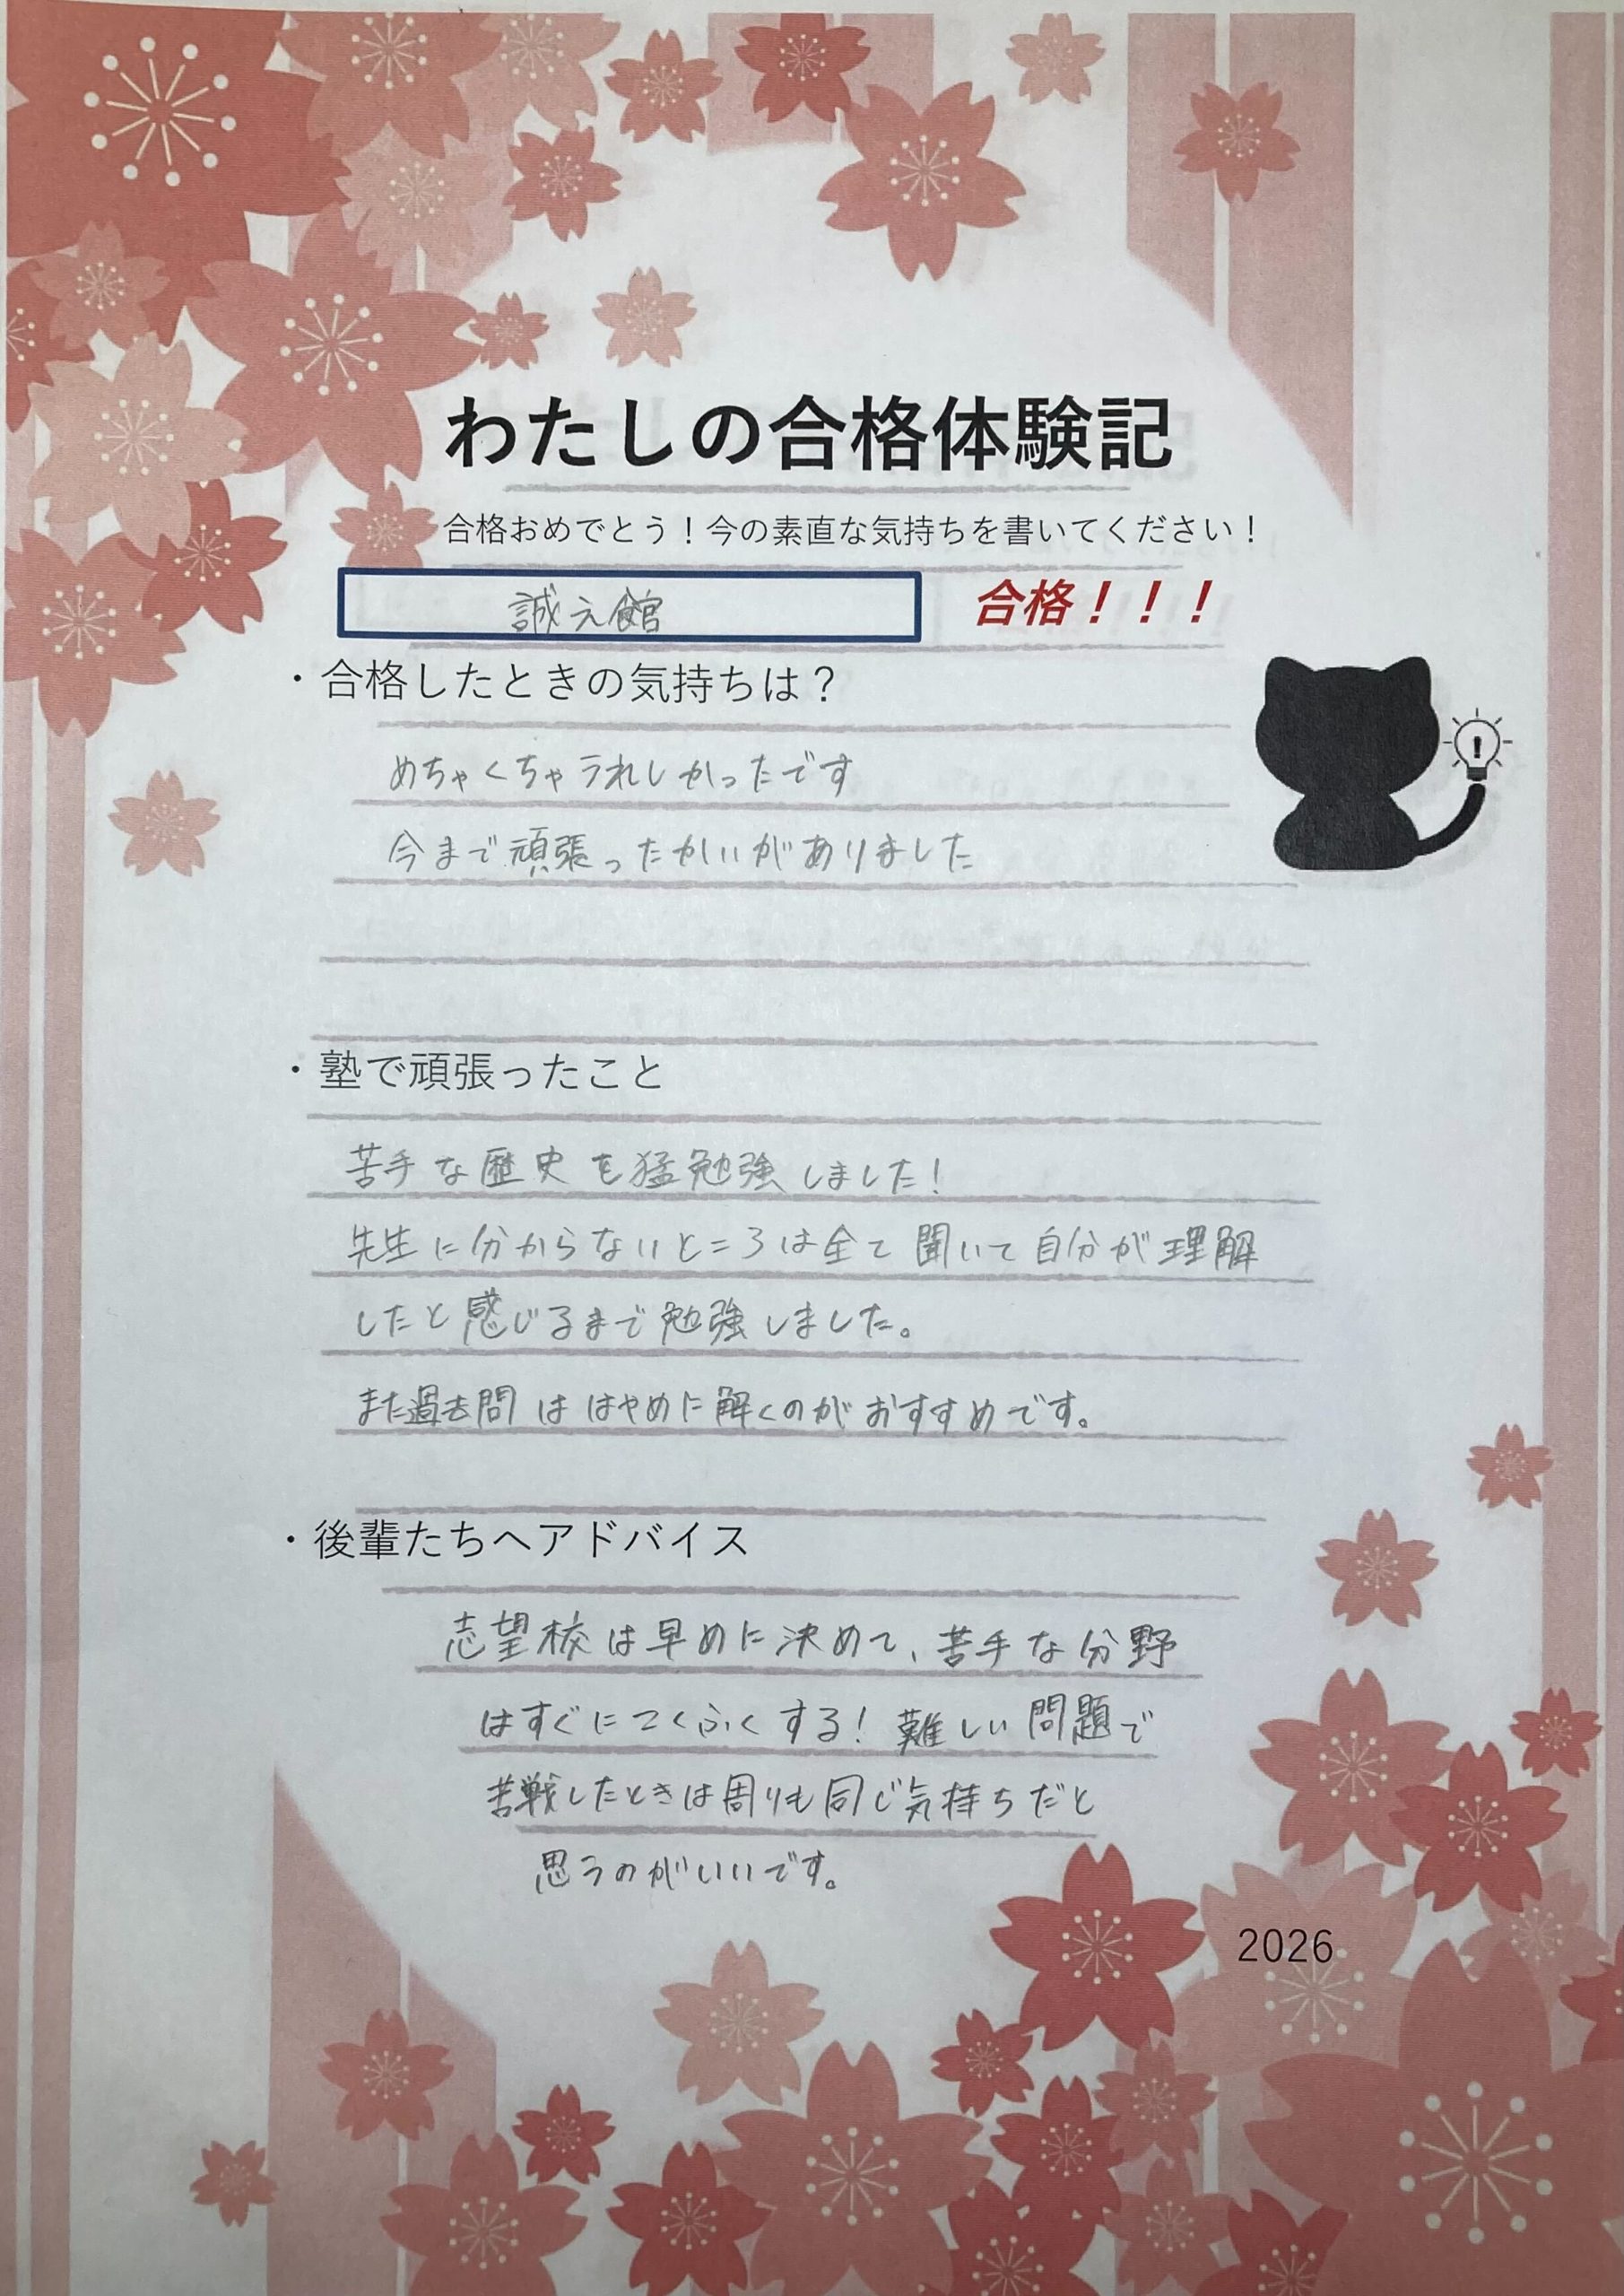 わたしの合格体験記
合格おめでとう！今の素直な気持ちを書いてください！
誠之館 合格！！！
・合格したときの気持ちは？
めちゃくちゃうれしかったです
今まで頑張ったかいがありました
・塾で頑張ったこと
苦手な歴史を猛勉強しました！
先生に分からないところは全て聞いて自分が理解
したと感じるまで勉強しました。
また過去問ははやめに解くのがおすすめです。
・後輩たちへアドバイス
志望校は早めに決めて、苦手な分野
はすぐにこくふくする！難しい問題で
苦戦したときは周りも同じ気持ちだと
思うのがいいです。
2026